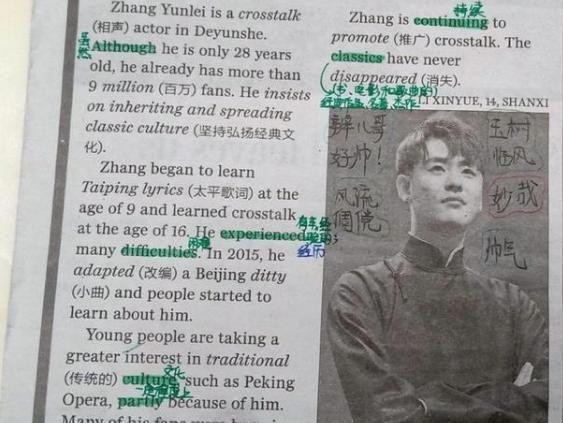 Zhang Yunlei is a crosstalk
(相声) actor in Deyunshe.
Although he is only 28 years
old, he already has more than
9 million (百万) fans. He insists
on inheriting and spreading
classic culture (坚持弘扬经典文
化).
Zhang began to learn
Taiping lyrics (太平歌词) at the
age of 9 and learned crosstalk
at the age of 16. He experienced
经历
many difficulties. In 2015, he
困难
adapted (改编) a Beijing ditty
(小曲) and people started to
learn about him.
Young people are taking a
greater interest in traditional
文化
(传统的) culture, such as Peking
一定程度上
Opera, partly because of him.
Many of his fans were
持续
Zhang is continuing to
promote (推广) crosstalk. The
classics have never
disappeared (消失).
(书、电影和歌曲的)
经典作品、名著、杰作
LI XINYUE, 14, SHANXI
辫儿哥
好帅!
风流
倜傥
玉树
临风
妙哉
帅气